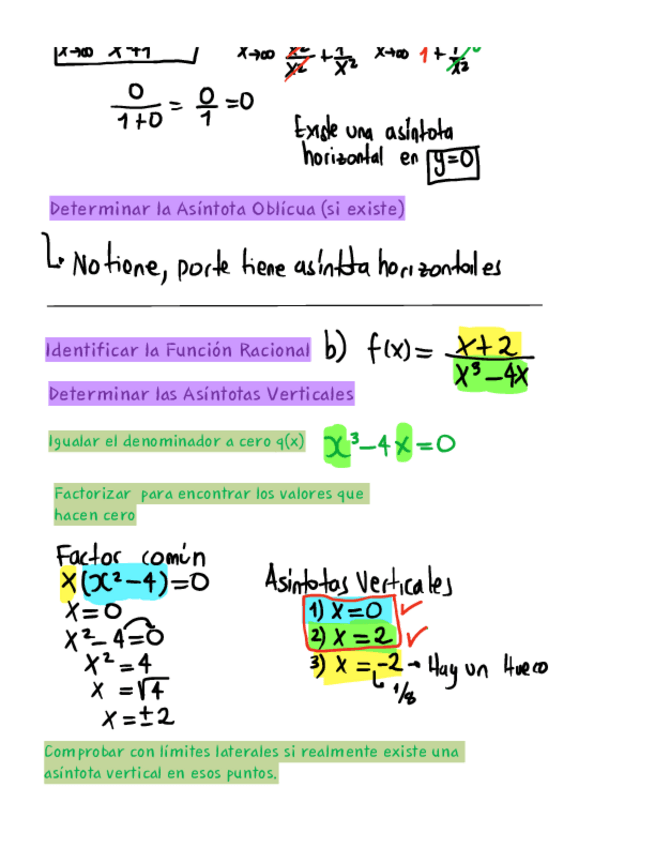 x→∞ x+1 x→∞ x²/x² + 1/x² x→∞ 1 + 1/x² 0
0/(1+0) = 0/1 = 0
Existe una asíntota
horizontal en y=0
Determinar la Asíntota Oblícua (si existe)
No tiene, porke tiene asíntota horizontales
Identificar la Función Racional b) f(x) = (x+2)/(x³−4x)
Determinar las Asíntotas Verticales
Igualar el denominador a cero q(x) x³−4x=0
Factorizar para encontrar los valores que
hacen cero
Factor común
x(x²−4)=0
x=0
x²−4=0
x²=4
x =√4
x=±2
Asintotas Verticales
1) x=0 ✓
2) x=2 ✓
3) x=-2 → Hay un Hueco
1/8
Comprobar con límites laterales si realmente existe una
asíntota vertical en esos puntos.